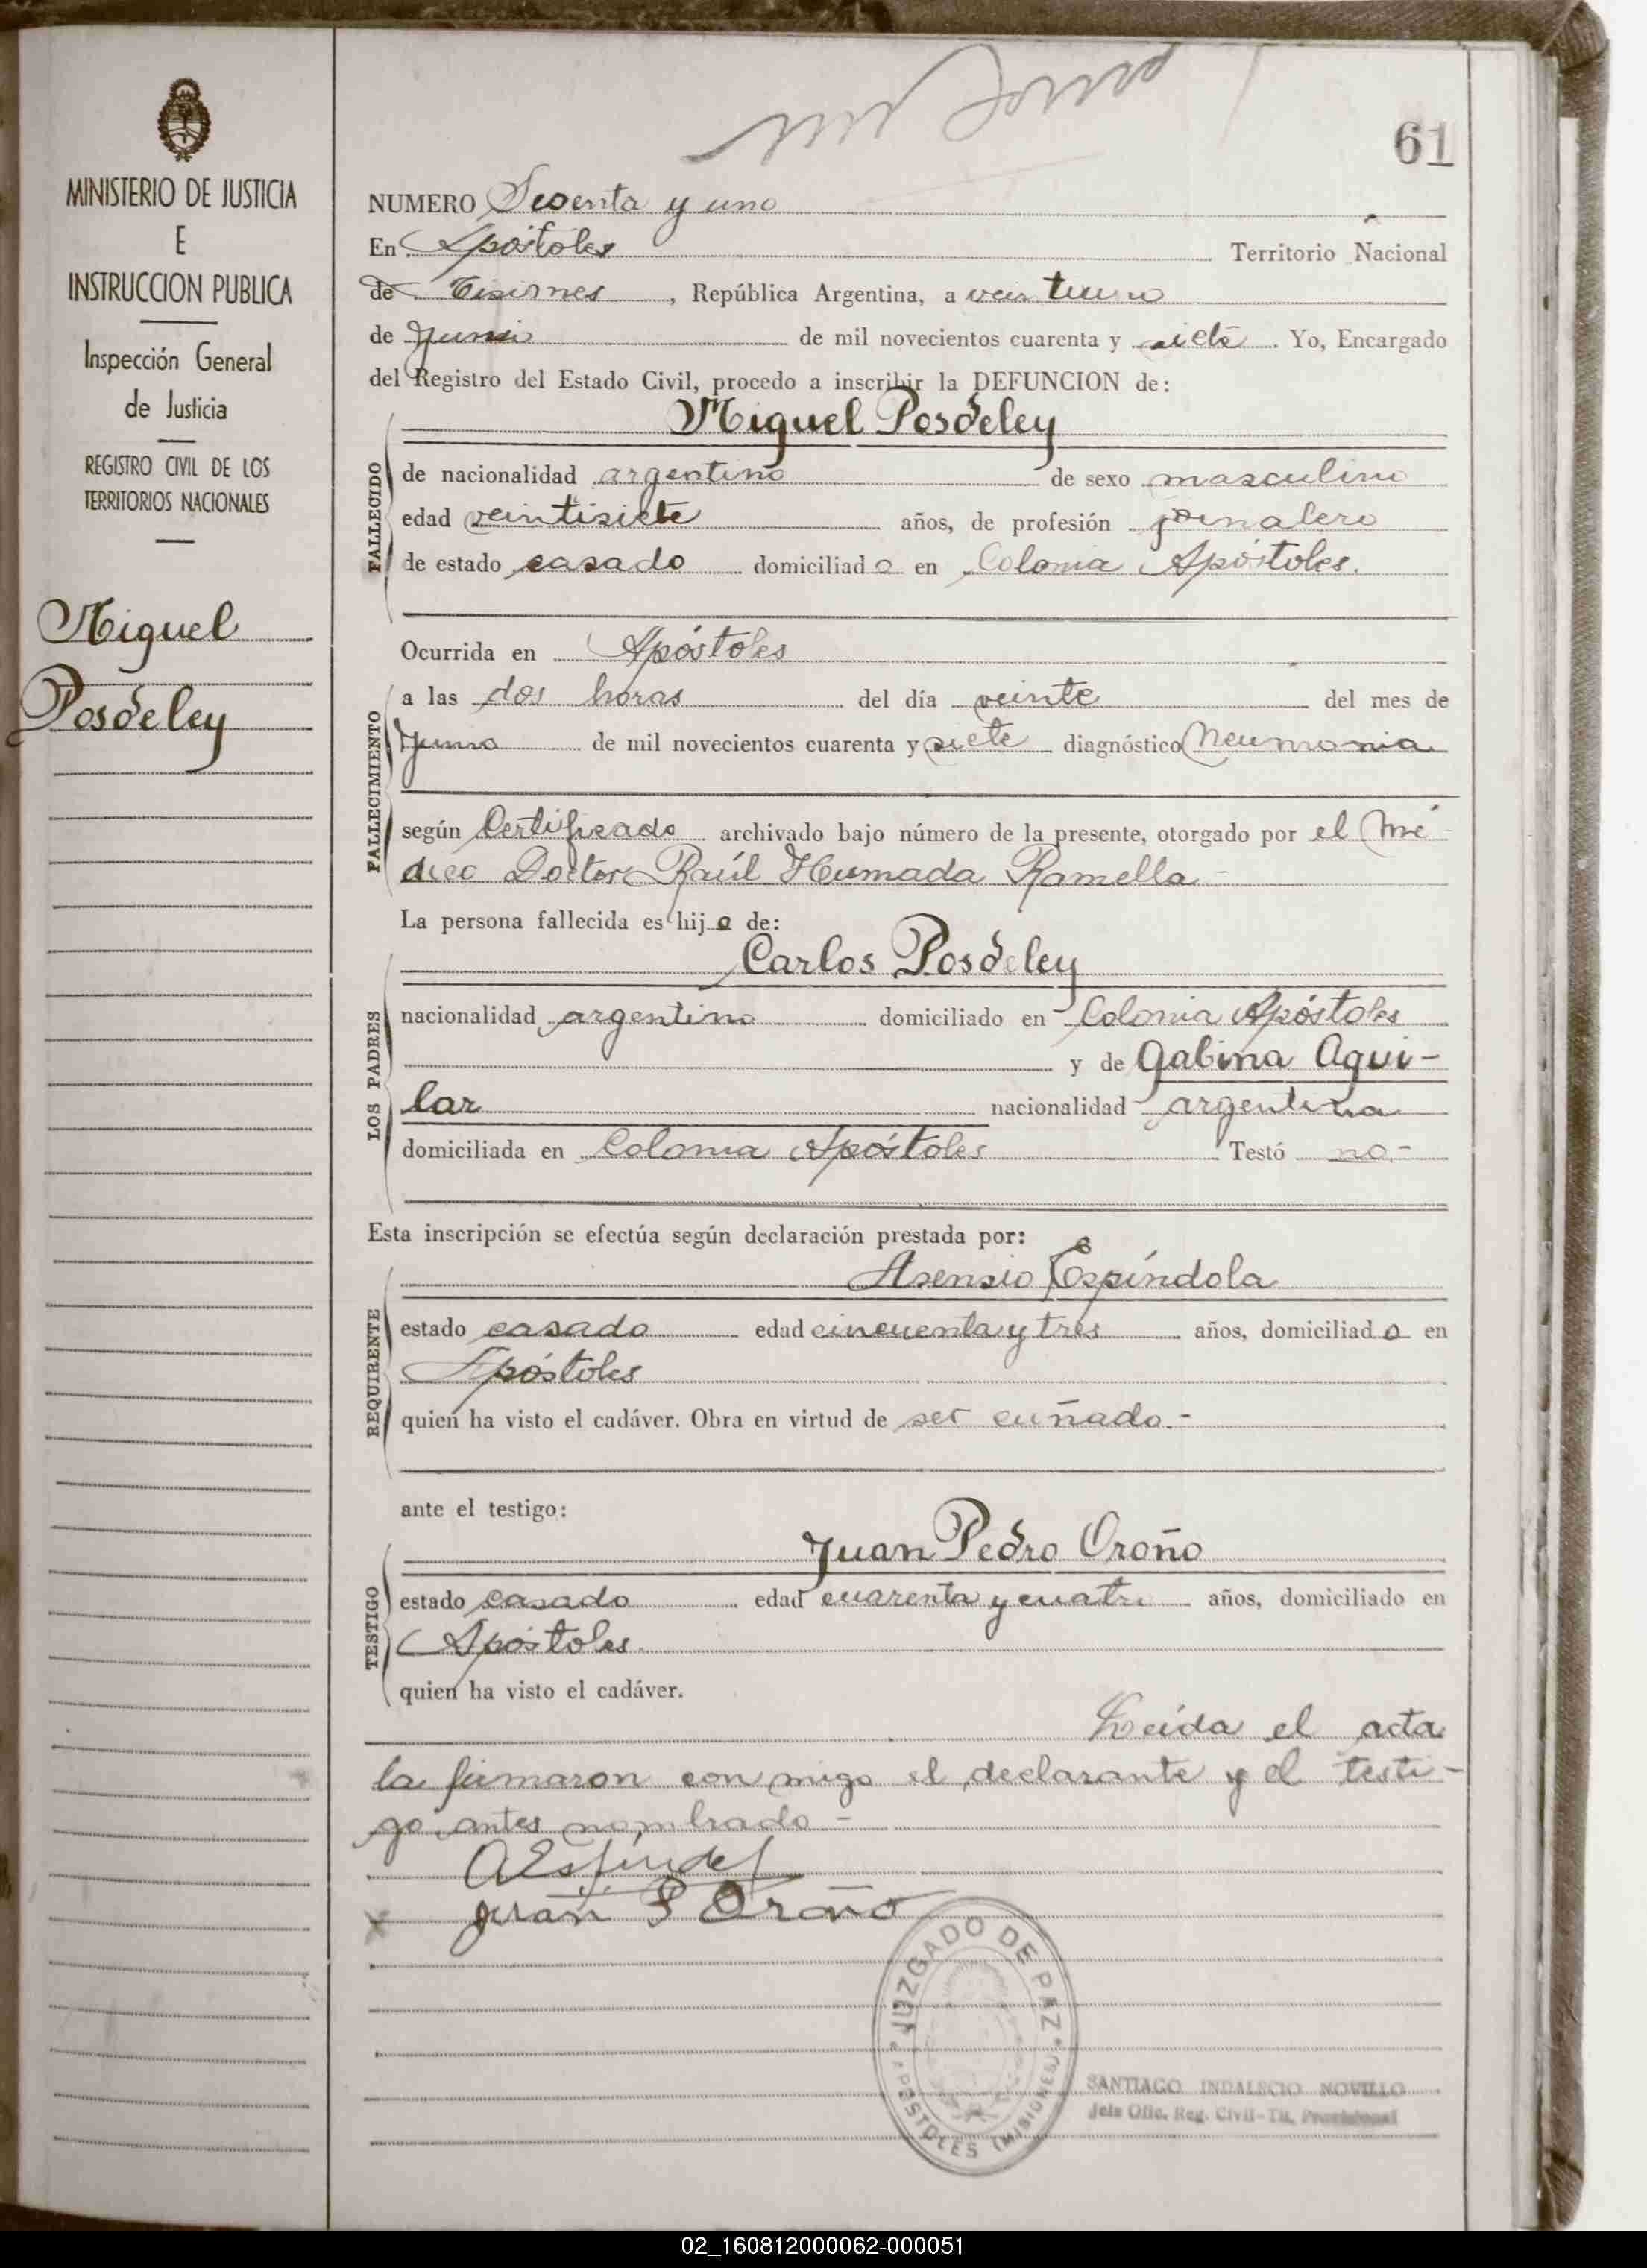 61
MINISTERIO DE JUSTICIA
E
INSTRUCCION PUBLICA
Inspección General
de Justicia
REGISTRO CIVIL DE LOS
TERRITORIOS NACIONALES
Miguel
Posdeley
NUMERO Sesenta y uno
En Apóstoles Territorio Nacional
de Misiones, República Argentina, a veintiuno
de Junio de mil novecientos cuarenta y siete. Yo, Encargado
del Registro del Estado Civil, procedo a inscribir la DEFUNCION de:
Miguel Posdeley
FALLECIDO
de nacionalidad argentino de sexo masculino
edad veintisiete años, de profesión jornalero
de estado casado domiciliado en Colonia Apóstoles.
FALLECIMIENTO
Ocurrida en Apóstoles
a las dos horas del día veinte del mes de
Junio de mil novecientos cuarenta y siete diagnóstico Neumonia
según Certificado archivado bajo número de la presente, otorgado por el Mé-
dico Doctor Raúl Humada Ramella -
La persona fallecida es hijo de:
LOS PADRES
Carlos Posdeley
nacionalidad argentino domiciliado en Colonia Apóstoles
y de Gabina Agui-
lar nacionalidad argentina
domiciliada en Colonia Apóstoles Testó no.-
Esta inscripción se efectúa según declaración prestada por:
REQUIRENTE
Asensio Espíndola
estado casado edad cincuenta y tres años, domiciliado en
Apóstoles
quien ha visto el cadáver. Obra en virtud de ser cuñado.-
ante el testigo:
TESTIGO
Juan Pedro Oroño
estado casado edad cuarenta y cuatro años, domiciliado en
Apóstoles.
quien ha visto el cadáver.
Leída el acta
la firmaron con migo el declarante y el testi-
go antes nombrado -
Juan P Oroño
JUZGADO DE PAZ
APOSTOLES (MISIONES)
SANTIAGO INDALECIO NOVILLO
Jefe Ofic. Reg. Civil - Tit.
02_160812000062-000051